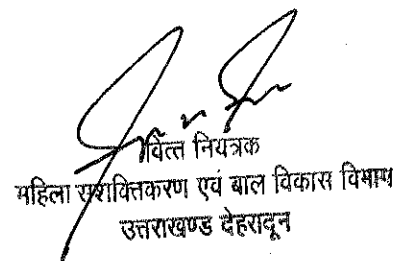 वित्त नियत्रक
महिला सशक्तिकरण एवं बाल विकास विभाग
उत्तराखण्ड देहरादून